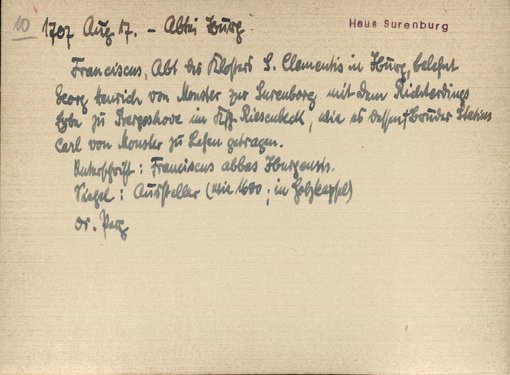 10 1707 Aug 17. - Abtei Iburg. Haus Surenburg
Franciscus, Abt des Klosters S. Clementis in Iburg, belehnt
Georg Henrich von Monster zur Surenborg mit dem Richterdings
Erbe zu im Ksp. Riesenbeck, wie es dessen Bruder Statius
Carl von Monster zu Lehen getragen.
Unterschrift: Franciscus abbas Iburgensis.
Siegel: Aussteller (wie 1600; in Holzkapsel)
Or. Perg